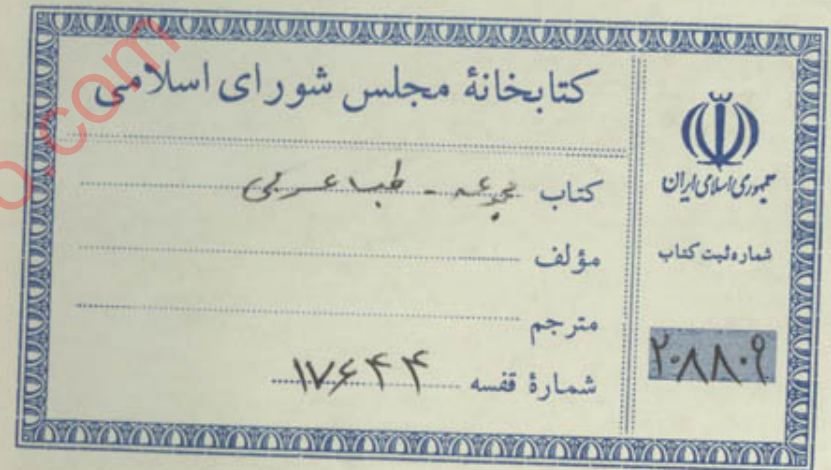 کتابخانهٔ مجلس شورای اسلامی
کتاب مجموعه - طب عربی
مؤلف
مترجم
شمارهٔ قفسه ۱۷۶۴۴
جمهوری اسلامی ایران
شماره ثبت کتاب
۲۰۸۸۰۹
o.com